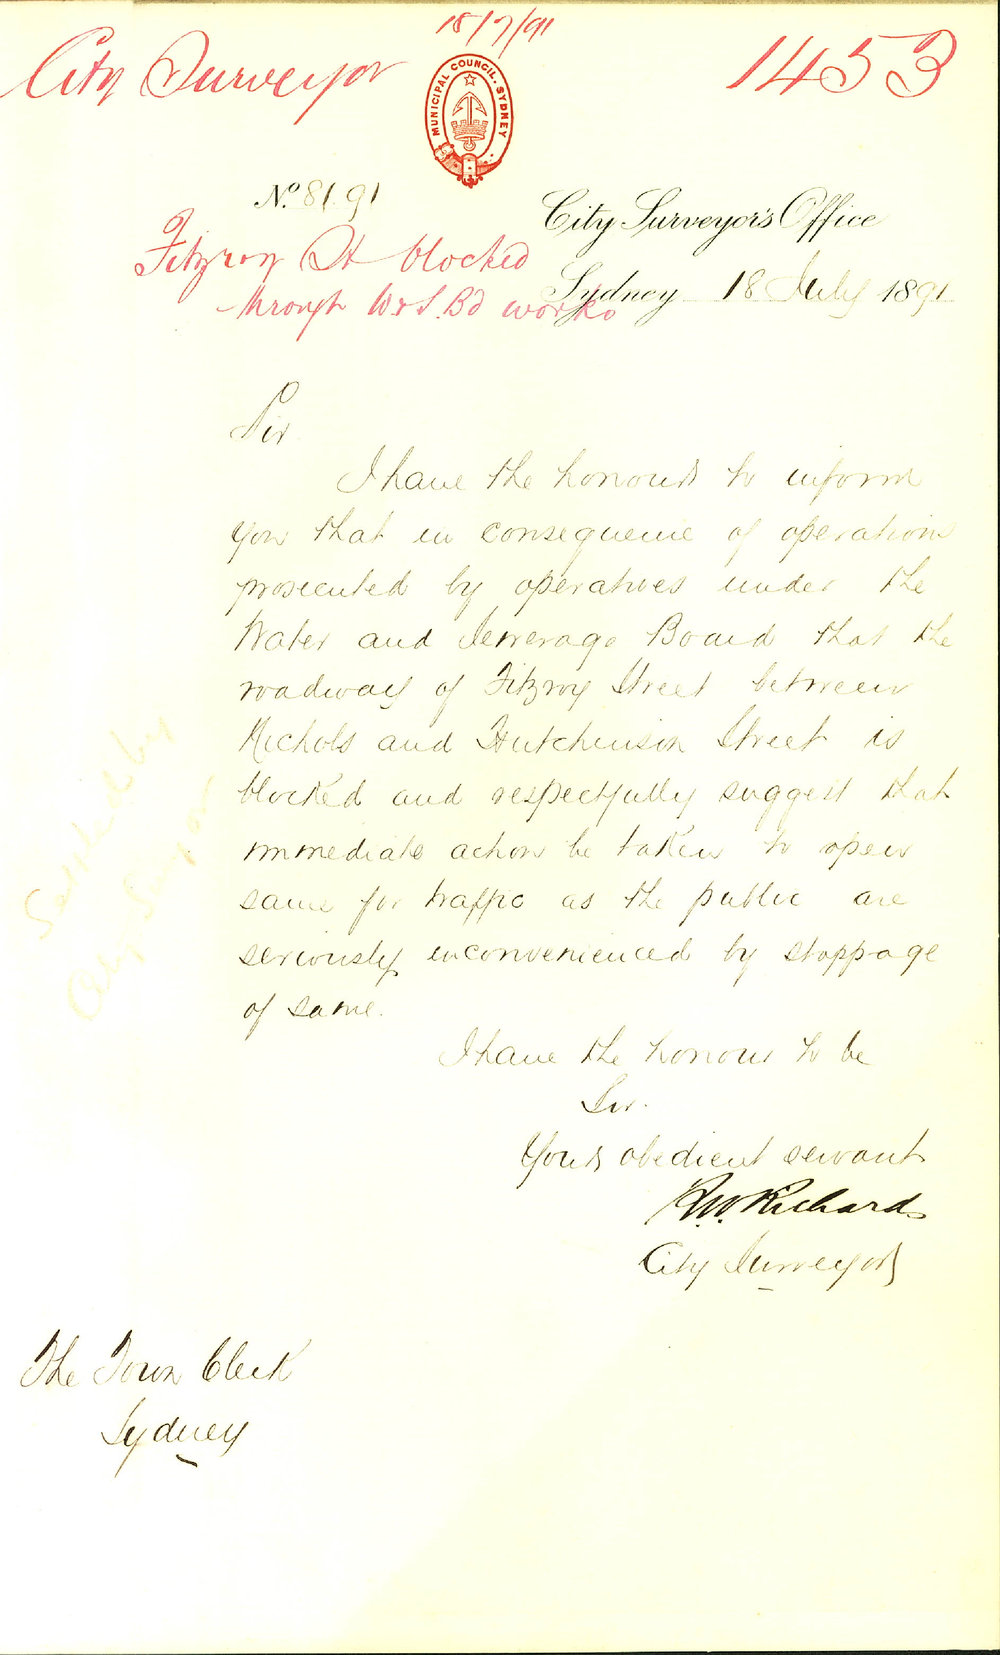 18/7/91
City Surveyor
1453
MUNICIPAL COUNCIL. SYDNEY
No. 81.91
City Surveyor's Office
Fitzroy St blocked
through W & S. Bd works
Sydney 18 July 1891
Sir
I have the honour to inform
you that in consequence of operations
prosecuted by operatives under the
Water and Sewerage Board that the
roadway of Fitzroy Street between
Nichols and Hutchinson Street is
blocked and respectfully suggest that
immediate action be taken to open
same for traffic as the public are
seriously inconvenienced by stoppage
of same.
I have the honour to be
Sir.
Yours obedient servant
R.W. Richards
City Surveyor
The Town Clerk
Sydney
Settled by
City Surveyor